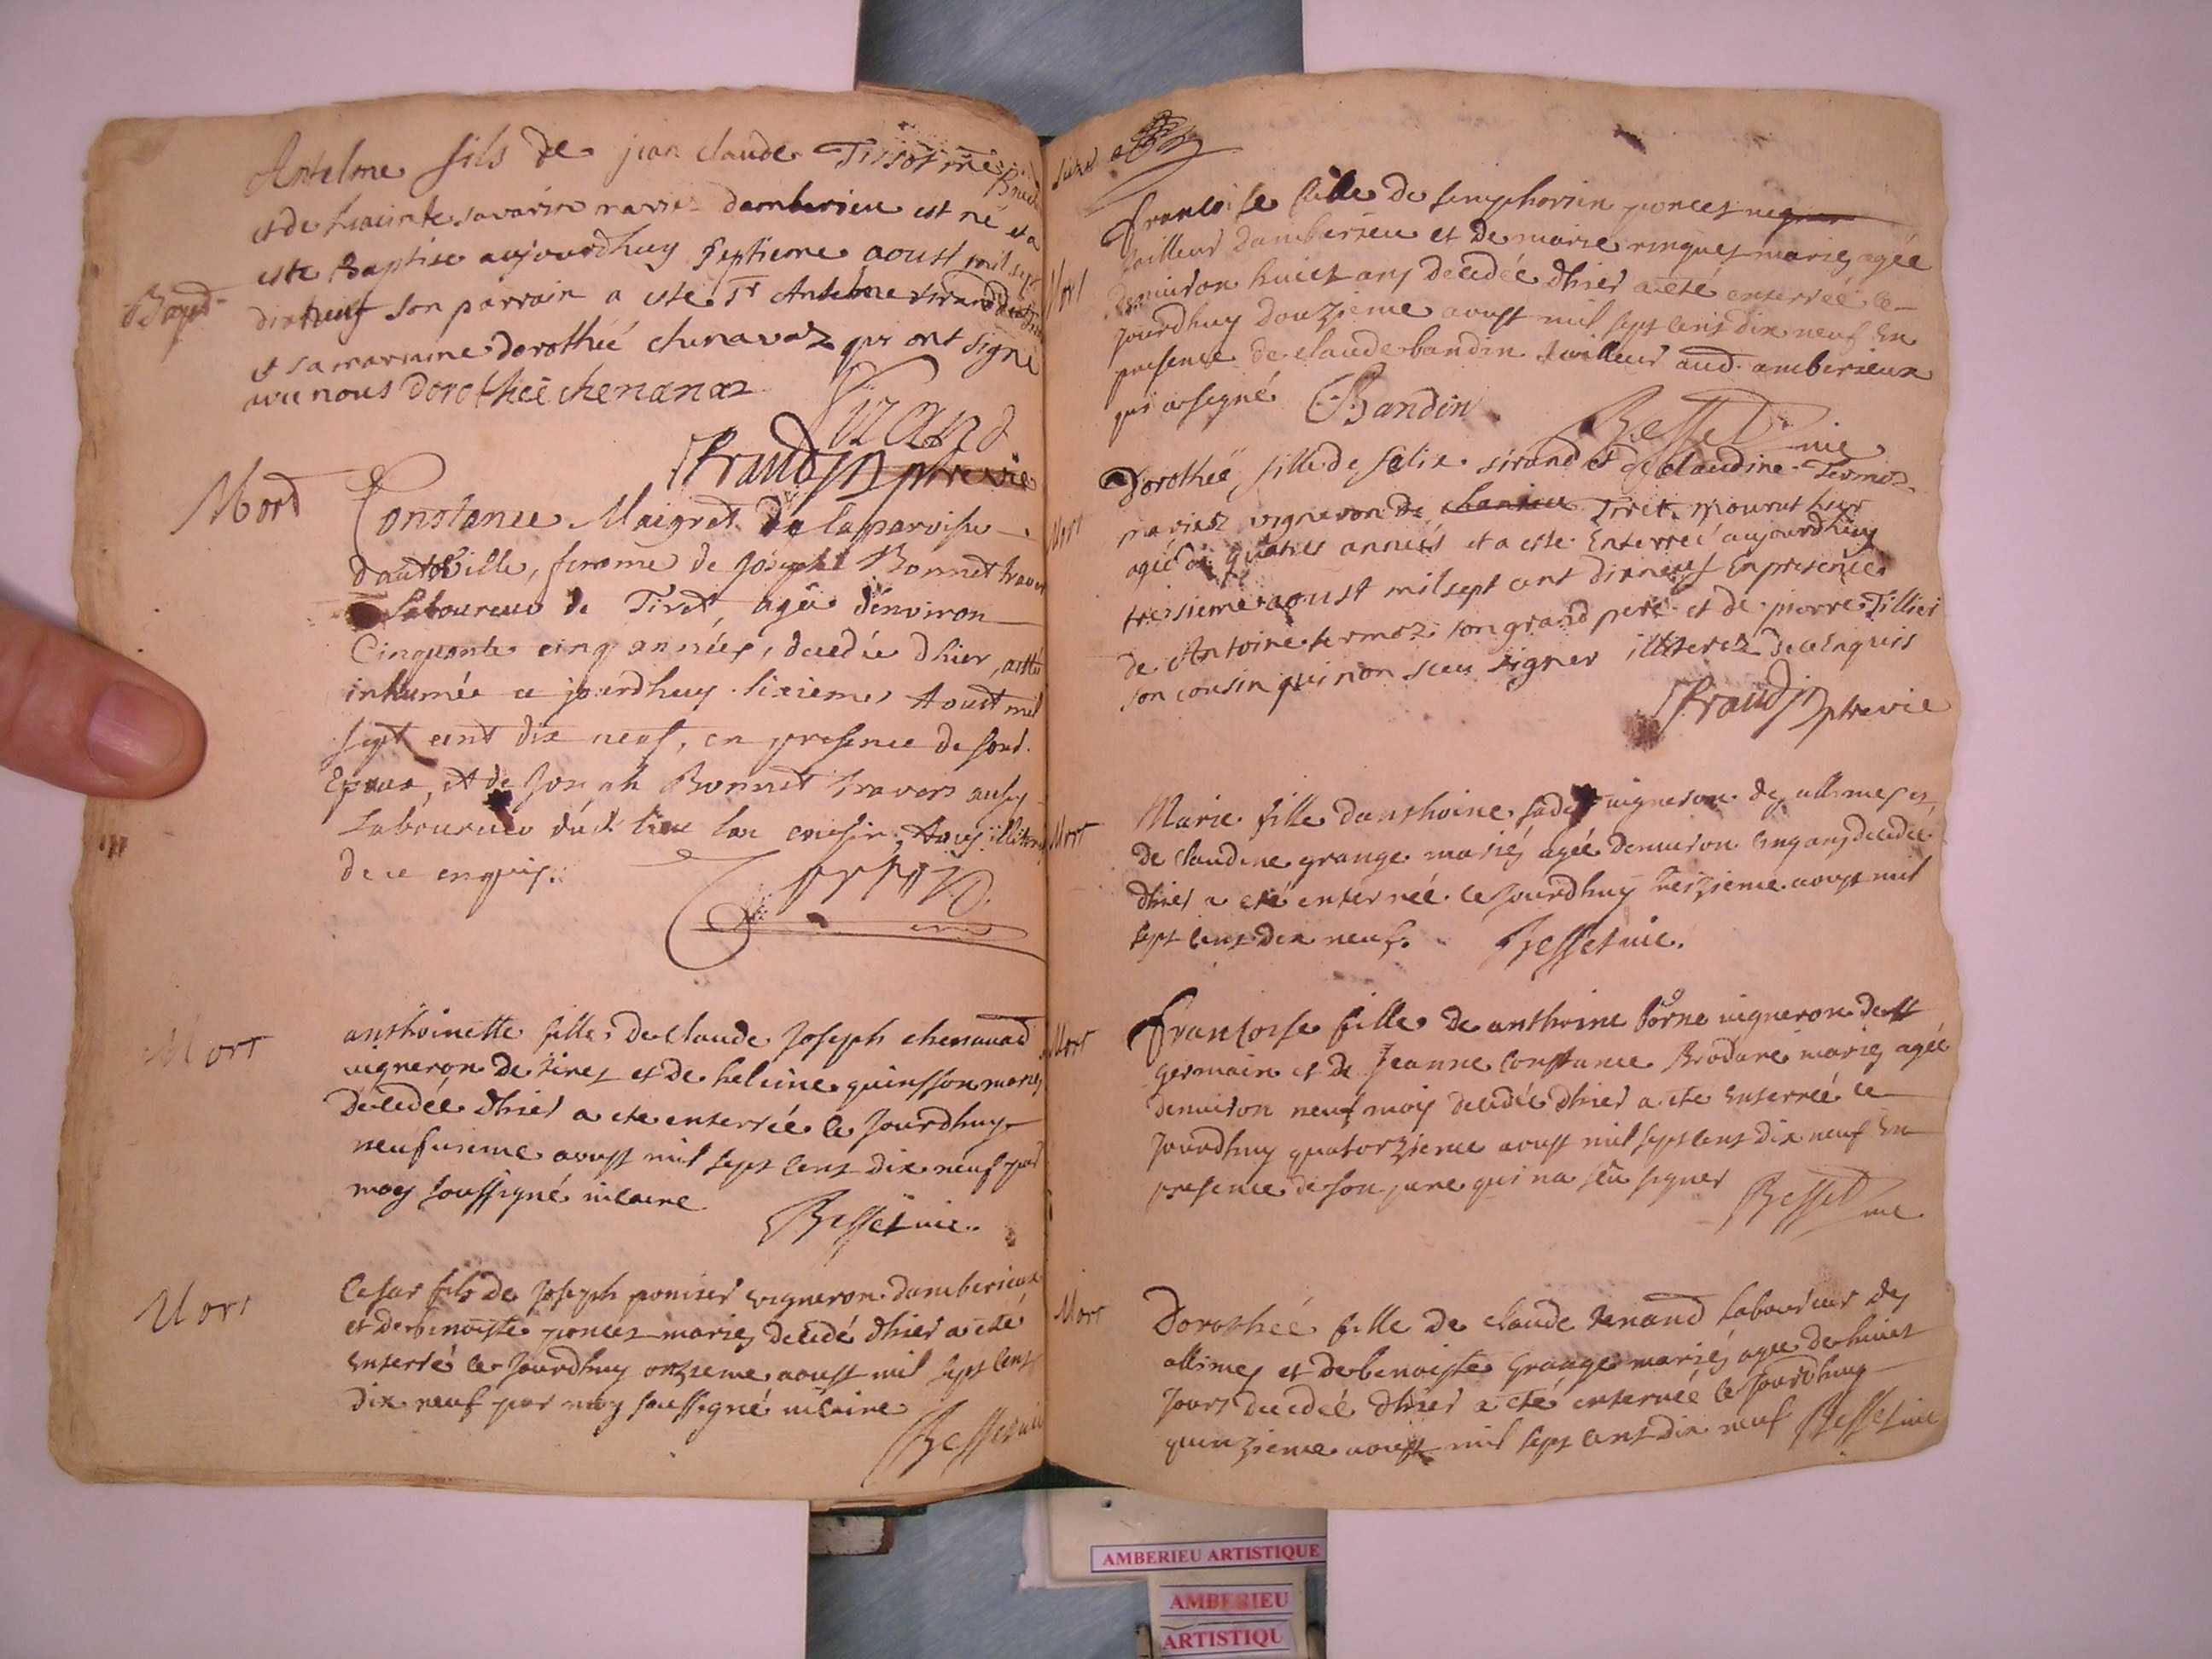 Antelme fils de jean claude Tissot me
et de hiacinte savarin mariez damberieu est né et a
este Baptise aujourdhuy septieme aoust mil sept
Bapt
dixneuf son parrain a este Sr Antelme sirand
et sa marraine dorothée chenavaz qui ont signé
avec nous dorothée chenavaz
Sirand
Praudin ptre vie
Mord
Constance Maigret de la parroisse
dautville, femme de Joseph Bonnet travers
Laboureur de Tiret, agée d'environ
Cinquante cinq années, decedée dhier, a etté
inhumée ce jourdhuy sixieme Aoust mil
sept cent dix neuf, en presence de sond.
Epoux, et de Joseph Bonnet travers aussy
Laboureur dud. lieu son cousin, tous illiterés
de ce enquis.
Mort
anthoinette fille de Claude Joseph chenavad
vigneron de tiret et de heleine quinsson mariez
decedée dhier a ete enterrée ce Jourdhuy
neufvieme aoust mil sept cens dix neuf par
moy soussigné vicaire
Besset vic.
Mort
Cesar fils de Joseph poniset vigneron damberieux
et de benoiste poncet mariez decedé dhier a eté
enterré ce Jourdhuy onzieme aoust mil sept cens
dix neuf par moy soussigné vicaire
Besset vic
Francoise fille de simphorien poncet
tailleur damberieu et de marie ringuet mariez agée
Mort
denviron huict ans decedée dhier a eté enterreé ce
jourdhuy douzieme aoust mil sept cens dix neuf En
presence de claude bandin tailleur aud. amberieux
qui a signé CBandin
Besset vic
Dorotheé, fille de felix sirand et de claudine Termoz
Mort
mariez vigneron de chanieu Tiret, mourut hier
ageé de quatre anneés et a este Enterreé aujourdhuy
treisieme aoust mil sept cent dixneuf En presence
de Antoine termoz son grand pere et de pierre Tillier
son cousin qui non sceu signer illiterez de ce Enquis
Praudin ptre vie
Mort
Marie fille danthoine vigneron des allimes et
de claudine grange mariés agée denviron cinq ans decedée
dhier a eté enterrée ce jourdhuy treizieme aoust mil
sept cens dix neuf. Besset vic.
Mort
Francoise fille de anthoine borne vigneron de st
germain et de Jeanne Constance Brodare mariez agée
denviron neuf moys decedée dhier a ete enterreé ce
jourdhuy quatorzieme aoust mil sept cens dix neuf En
presence de son pere qui na sçu signer Besset
vic
Mort
Dorothée fille de claude Renand laboureur des
allimes et de benoiste Grange mariés agée de huict
jours decedée dhier a eté enterrée ce jourdhuy
quinzieme aoust mil sept cens dix neuf Besset vic
AMBERIEU ARTISTIQUE
AMBERIEU
ARTISTIQU